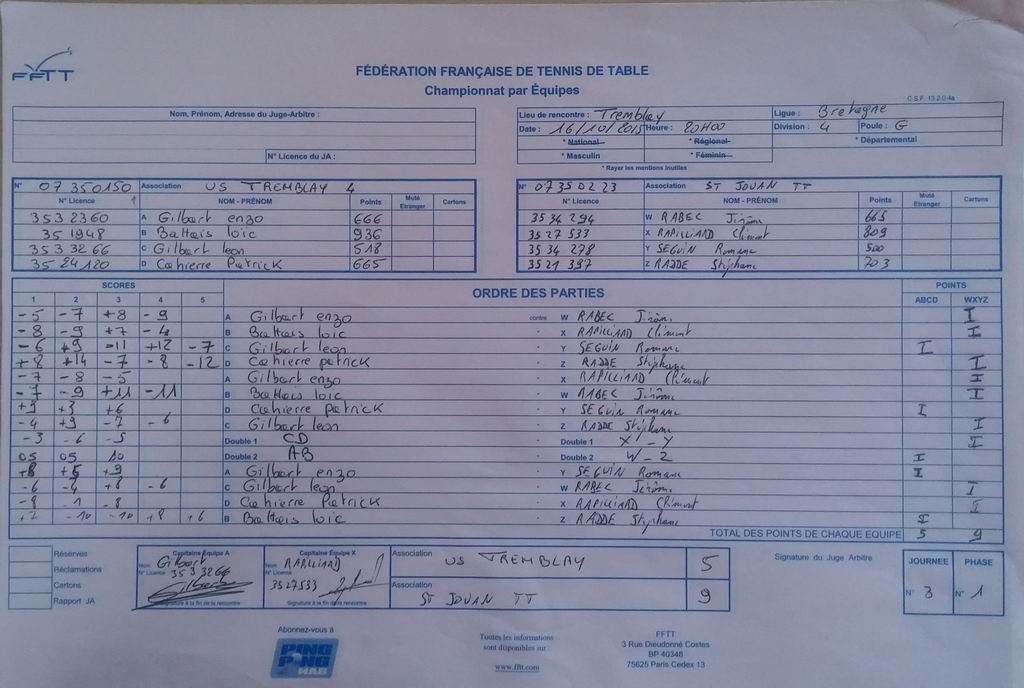 FFTT
FÉDÉRATION FRANÇAISE DE TENNIS DE TABLE
Championnat par Équipes
C.S.F. 13.2.0.4a
Nom, Prénom, Adresse du Juge-Arbitre :
N° Licence du JA :
Lieu de rencontre : Tremblay Ligue : Bretagne
Date : 16/10/2015 Heure : 20H00 Division : 4 Poule : G
* National * Régional * Départemental
* Masculin * Féminin
* Rayer les mentions inutiles
N° 07350150 Association US TREMBLAY 4
N° Licence NOM - PRÉNOM Points Muté Etranger Cartons
3532360 A Gilbert enzo 666
351948 B Battais loic 936
3533266 C Gilbert leon 518
3524120 D Cahierre Patrick 665
N° 07350223 Association ST JOUAN TT
N° Licence NOM - PRÉNOM Points Muté Etranger Cartons
3534294 W RABEC Jérôme 665
3527533 X RAPILLIARD Clément 809
3534278 Y SEGUIN Romane 500
3521397 Z RADDE Stéphane 703
SCORES ORDRE DES PARTIES POINTS
1 2 3 4 5 ABCD WXYZ
-5 -7 +8 -9 A Gilbert enzo contre W RABEC Jérôme I
-8 -9 +7 -4 B Battais loic X RAPILLIARD Clément I
-6 +9 -11 +12 -7 C Gilbert leon Y SEGUIN Romane I
+8 +14 -7 -8 -12 D Cahierre patrick Z RADDE Stéphane I
-7 -8 -5 A Gilbert enzo X RAPILLIARD Clément I
-7 -9 +11 -11 B Battais loic W RABEC Jérôme I
+9 +3 +6 D Cahierre Patrick Y SEGUIN Romane I
-4 +9 -7 -6 C Gilbert leon Z RADDE Stéphane I
-3 -6 -5 Double 1 CD Double 1 X-Y I
05 05 10 Double 2 AB Double 2 W-Z I
+8 +5 +9 A Gilbert enzo Y SEGUIN Romane I
-6 -4 +8 -6 C Gilbert leon W RABEC Jérôme I
-9 -1 -8 D Cahierre Patrick X RAPILLIARD Clément I
+2 -10 -10 +8 +6 B Battais loic Z RADDE Stéphane I
TOTAL DES POINTS DE CHAQUE EQUIPE 5 9
Réserves
Réclamations
Cartons
Rapport JA
Capitaine Équipe A
Nom Gilbert
N° Licence 3533266
Signature à la fin de la rencontre
Capitaine Équipe X
Nom RAPILLIARD
N° Licence
3527533
Signature à la fin de la rencontre
Association US TREMBLAY 5
Association ST JOUAN TT 9
Signature du Juge Arbitre
JOURNEE PHASE
N° 3 N° 1
Abonnez-vous à
PING PONG MAG
Toutes les informations
sont disponibles sur :
www.fftt.com
FFTT
3 Rue Dieudonné Costes
BP 40348
75625 Paris Cedex 13